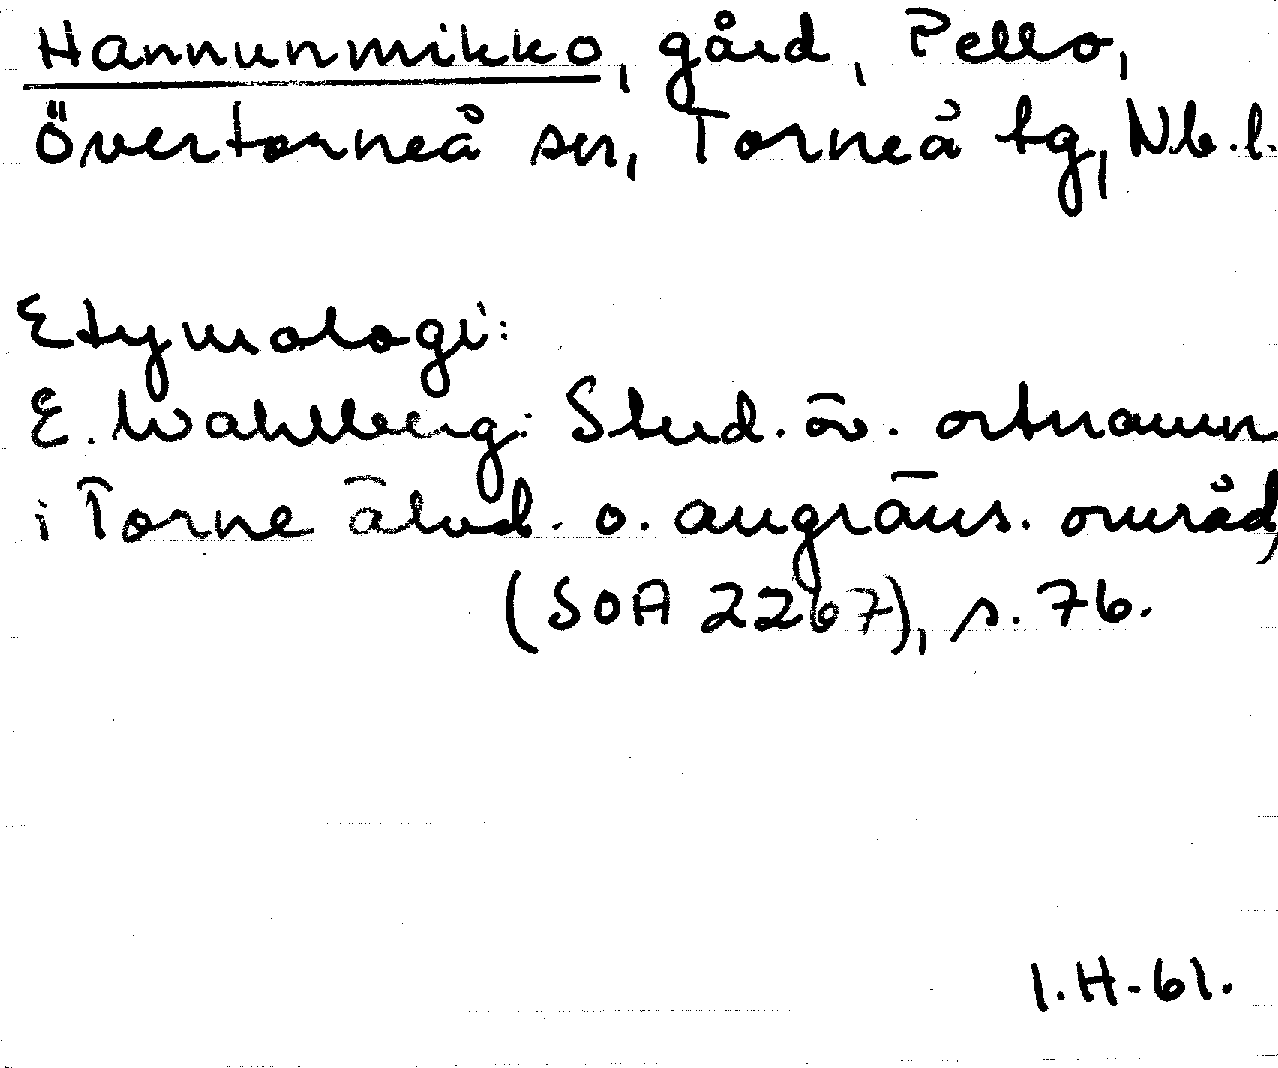 Hannunmikko, gård, Pello,
Övertorneå sn, Torneå tg, Nb.l.
Etymologi:
E. Wahlberg: Stud. öv. ortnamn
i Torne älvd. o. angräns. områd,
(SOA 2267), s. 76.
I.H-61.